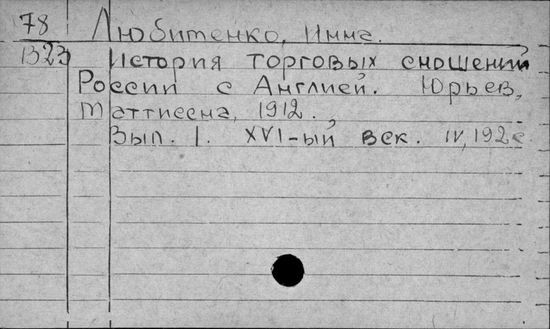 78 Любитенко, Инна.
1323 История торговых сношений
России с Англией. Юрьев,
Маттиесена, 1912.,
Вып. I. XVI-ый век. IV, 192 с